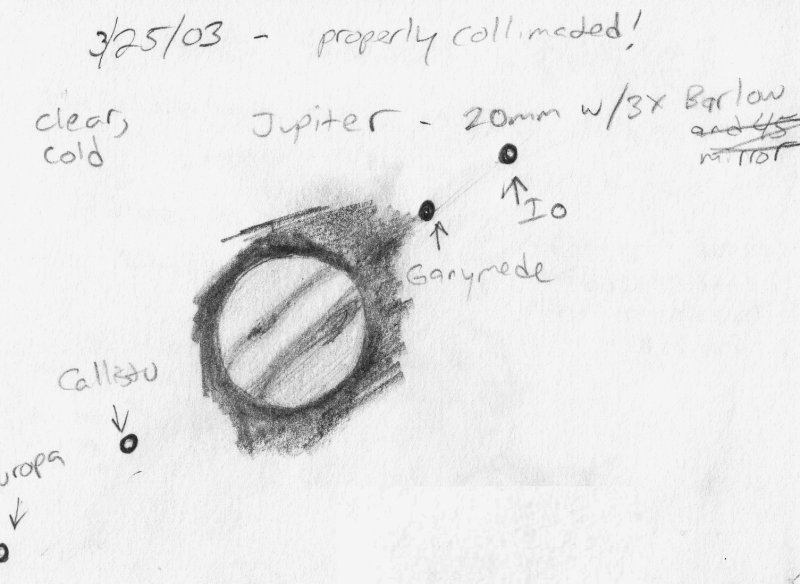 3/25/03 - properly collimaded!
clear,
cold
Jupiter - 20mm w/3x Barlow
and 45
mirror
Io
Ganymede
Callisto
uropa